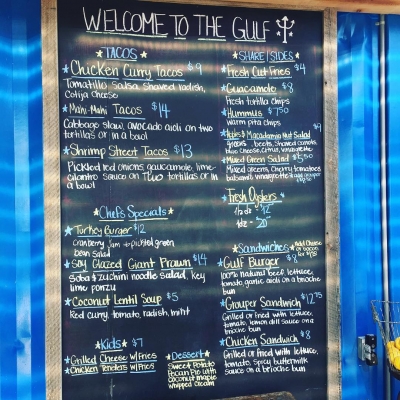 WELCOME TO THE GULF
TACOS
Chicken Curry Tacos $9
Tomatillo Salsa, shaved radish,
Cotija Cheese
Mahi-Mahi Tacos $14
Cabbage slaw, avocado aioli on two
tortillas or in a bowl
Shrimp Street Tacos $13
Pickled red onions, guacamole, lime-
cilantro sauce on Two tortillas or in
a bowl
Chefs Specials
Turkey Burger $12
Cranberry Jam + pickled green
bean salad
Soy Glazed Giant Prawn $14
Soba & zuchini noodle salad, key
lime ponzu
Coconut Lentil Soup $5
Red curry, tomato, radish, mint
Kids $7
Grilled Cheese w/Fries
Chicken Tenders w/Fries
Dessert
Sweet Potato
Pecan Pie with
Coconut maple
whipped cream
SHARE | SIDES
Fresh Cut Fries $4
Guacamole $8
Fresh tortilla chips
Hummus $7.50
warm pita chips
& Macadamia Nut Salad $9
greens, beets, shaved carrots,
two cheese, citrus, vinaigrette
Mixed Green Salad $5.50
Mixed greens, Cherry tomatoes
balsamic vinaigrette
Fresh Oysters
1/2 dz - 12
1dz - 20
Sandwiches
Add Cheese
or bacon
Gulf Burger $8
100% natural beef, lettuce,
tomato, garlic aioli on a brioche
bun
Grouper Sandwich $12.75
Grilled or fried with lettuce,
tomato, lemon dill sauce on a
brioche bun
Chicken Sandwich $8
Grilled or fried with lettuce,
tomato, spicy buttermilk
sauce on a brioche bun